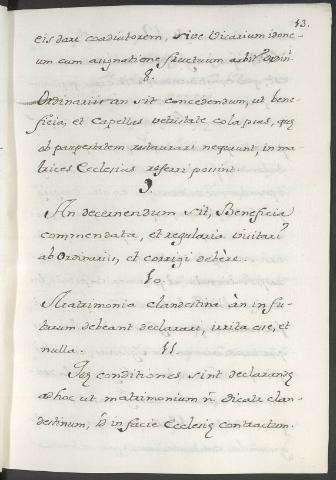 43.
eis dari coadiutorem, sive Vicarium idone-
um cum assignatione fructuum arbitr.º ordin.
8.
Ordinariis an sit concedendum, ut bene-
ficia, et Capellas vetustate colapsas, quę
ob paupertatem restaurari nequeunt, in ma-
trices Ecclesias referri possint
9.
An decernendum sit, Beneficia
commendata, et regularia visitari
ab Ordinariis, et corrigi debere.
10.
Matrimonia clandestina àn in fu-
turum debeant declarari, irrita esse, et
nulla. 11.
Quę conditiones sint declarandę
ad hoc ut matrimonium n̄ dicatur clan-
destinum, in facie Ecclesię contractum.